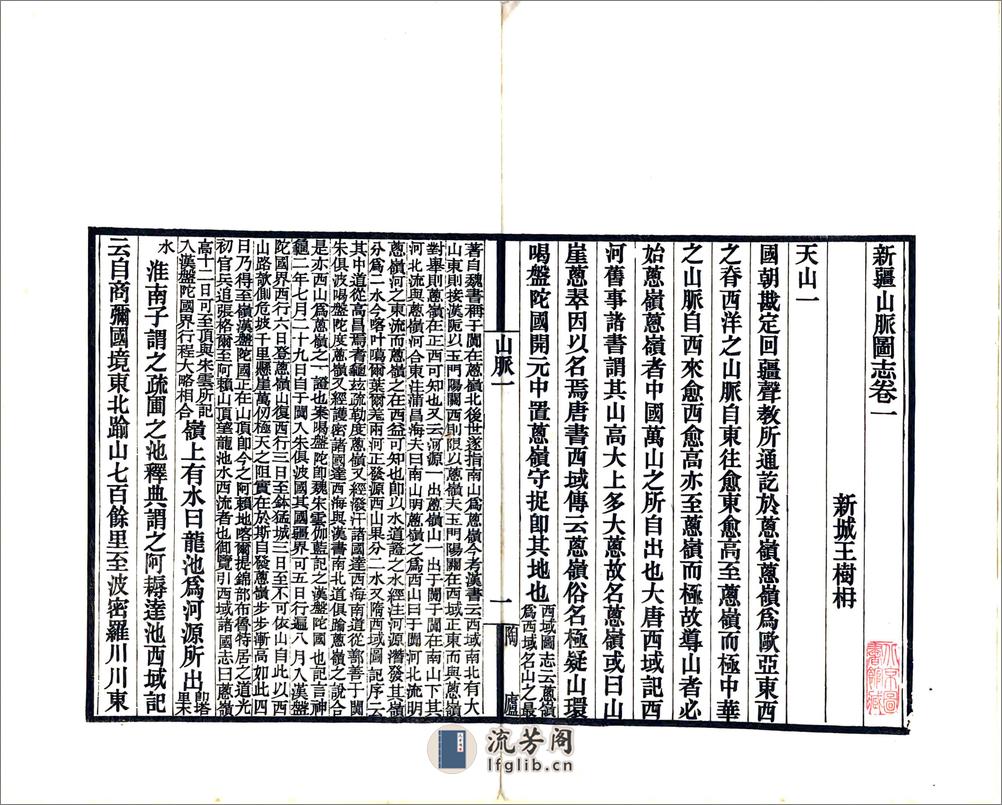 新疆山脈圖志卷一
新城王樹枏
天山一
國朝戡定回疆聲教所通訖於蔥嶺蔥嶺爲歐亞東西
之脊西洋之山脈自東往愈東愈高至蔥嶺而極中華
之山脈自西來愈西愈高亦至蔥嶺而極故導山者必
始蔥嶺蔥嶺者中國萬山之所自出也大唐西域記西
河舊事諸書謂其山高大上多大蔥故名蔥嶺或曰山
崖蔥翠因以名焉唐書西域傳云蔥嶺俗名極疑山環
喝盤陀國開元中置蔥嶺守捉卽其地也
西域圖志云蔥嶺
爲西域名山之最
山脈一
一
陶廬
著自魏書稱于闐在蔥嶺北後世遂指南山爲蔥嶺今考漢書云西域南北有大
山東則接漢阸以玉門陽關西則限以蔥嶺夫玉門陽關在西域正東而與蔥嶺
對舉則蔥嶺在正西可知也又云河源一出蔥嶺山一出于闐于闐在南山下其
河北流與蔥嶺河合東注蒲昌海夫曰南山明蔥嶺之爲西山曰于闐河北流明
蔥嶺河之東流而蔥嶺之在西益可知也卽以水道證之水經注河源潛發其嶺
分爲二水今喀什噶爾葉爾羌兩河正發源西山果分二水又隋西域圖記序云
其中道從高昌焉耆龜玆疏勒度蔥嶺又經潑汗諸國達西海南道從鄯善于闐
朱俱波喝盤陀度蔥嶺又經護密諸國達西海與漢書南北道俱踰蔥嶺之說合
是亦西山爲蔥嶺之一證也案喝盤陀卽魏宋雲伽藍記之漢盤陀國也記言神
龜二年七月二十九日自于闐入朱俱波國其國疆界可五日行遍八月入漢盤
陀國界西行六日登蔥嶺山復西行三日至鉢猛城三日至不可依山自此以西
山路欹側危坡千里懸崖萬仞極天之阻實在於斯自發蔥嶺步步漸高如此四
日乃得至嶺漢盤陀國正在山頂卽今之阿賴地喀爾提錦部布魯特居之道光
初官兵追張格爾至阿賴山頂望龍池水西流者也御覽引西域諸國志曰蔥嶺
高十二日可至頂與朱雲所記
入漢盤陀國界行程大略相合
嶺上有水曰龍池爲河源所出
卽塔
里木
水
淮南子謂之疏圃之池釋典謂之阿耨達池西域記
云自商彌國境東北踰山七百餘里至波密羅川川東
流芳阁
lfglib.cn